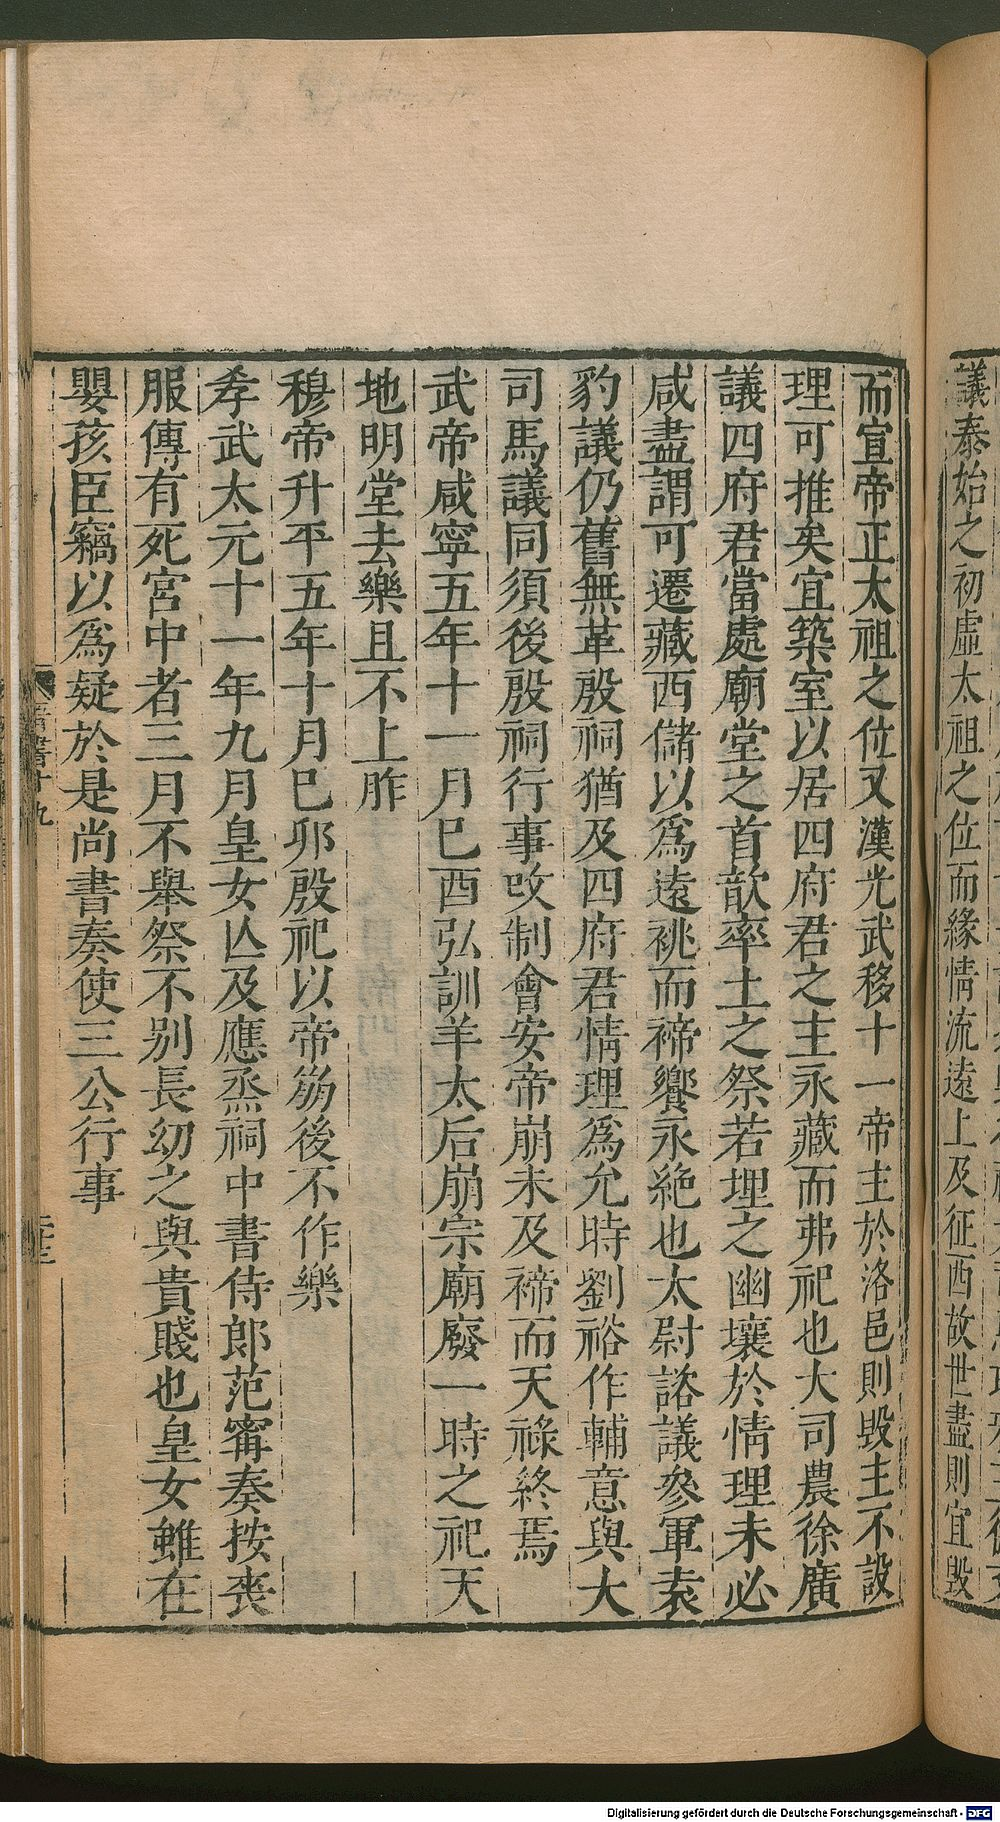 議泰始之初虛太祖之位而緣情流遠上及征西故世盡則宜毀
而宣帝正太祖之位又漢光武移十一帝主於洛邑則毀主不設
理可推矣宜築室以居四府君之主永藏而弗祀也大司農徐廣
議四府君嘗處廟堂之首歆率土之祭若埋之幽壤於情理未必
咸盡謂可遷藏西儲以爲遠祧而禘饗永絶也太尉諮議參軍袁
豹議仍舊無革殷祠猶及四府君情理爲允時劉裕作輔意與大
司馬議同須後殷祠行事改制會安帝崩未及禘而天祿終焉
武帝咸寧五年十一月巳酉弘訓羊太后崩宗廟廢一時之祀天
地明堂去樂且不上胙
穆帝升平五年十月巳卯殷祀以帝崩後不作樂
孝武太元十一年九月皇女亾及應烝祠中書侍郎范甯奏按喪
服傳有死宮中者三月不舉祭不別長幼之與貴賤也皇女雖在
嬰孩臣竊以爲疑於是尚書奏使三公行事
晉書十九
Digitalisierung gefördert durch die Deutsche Forschungsgemeinschaft - DFG